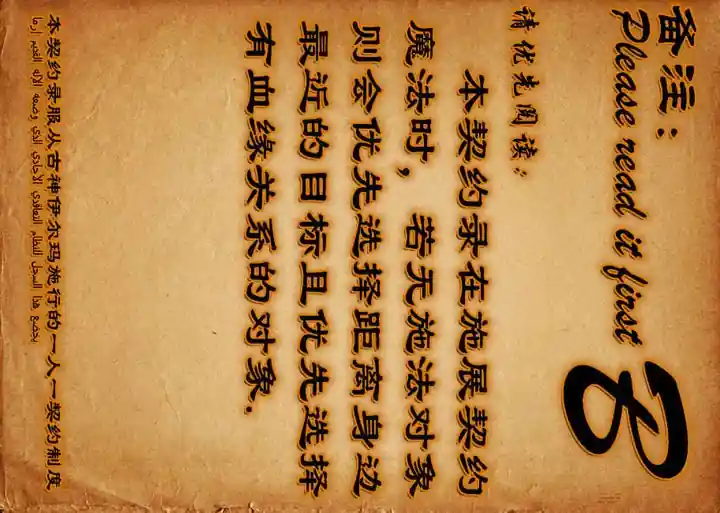 备注:
Please read it first
请优先阅读:
本契约录在施展契约
魔法时,若无施法对象
则会优先选择距离身边
最近的目标且优先选择
有血缘关系的对象.
本契约录服从古神伊尔玛施行的一人一契约制度
يخضع هذا السجل للنظام التعاقدي الأحادي الذي وضعه الإله القديم إرما